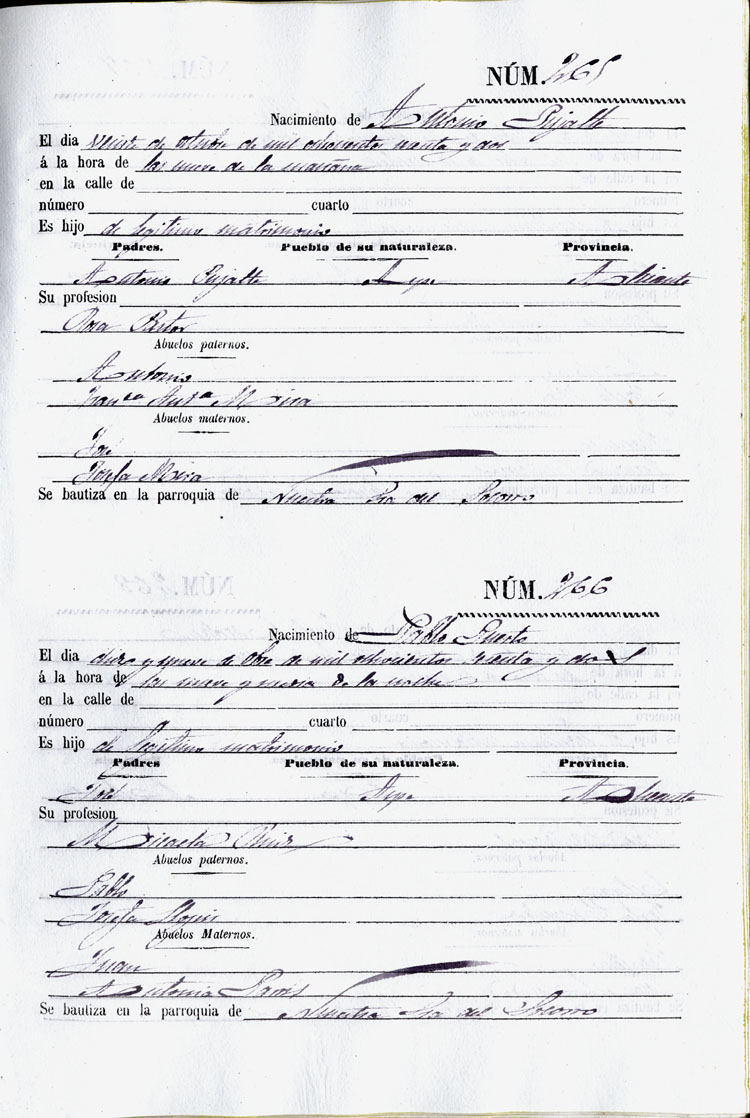 NÚM. 265
Nacimiento de Antonio Pujalte
El dia veinte de octubre de mil ochocientos y dos
á la hora de las nueve de la mañana
en la calle de
número cuarto
Es hijo de legitimo matrimonio
Padres. Pueblo de su naturaleza. Provincia.
Antonio Pujalte Aspe Alicante
Su profesion
Rosa Pastor
Abuelos paternos.
Antonio
Mira
Abuelos maternos.
José
Josefa Mira
Se bautiza en la parroquia de Nuestra Sra del Socorro
NÚM. 266
Nacimiento de Pablo Puerto
El dia diez y nueve de 8bre de mil ochocientos y dos
á la hora de las nueve y media de la noche
en la calle de
número cuarto
Es hijo de legitimo matrimonio
Padres Pueblo de su naturaleza. Provincia.
José Aspe Alicante
Su profesion
Micaela
Abuelos paternos.
Pablo
Josefa
Abuelos Maternos.
Juan
Antonia
Se bautiza en la parroquia de Nuestra Sra del Socorro